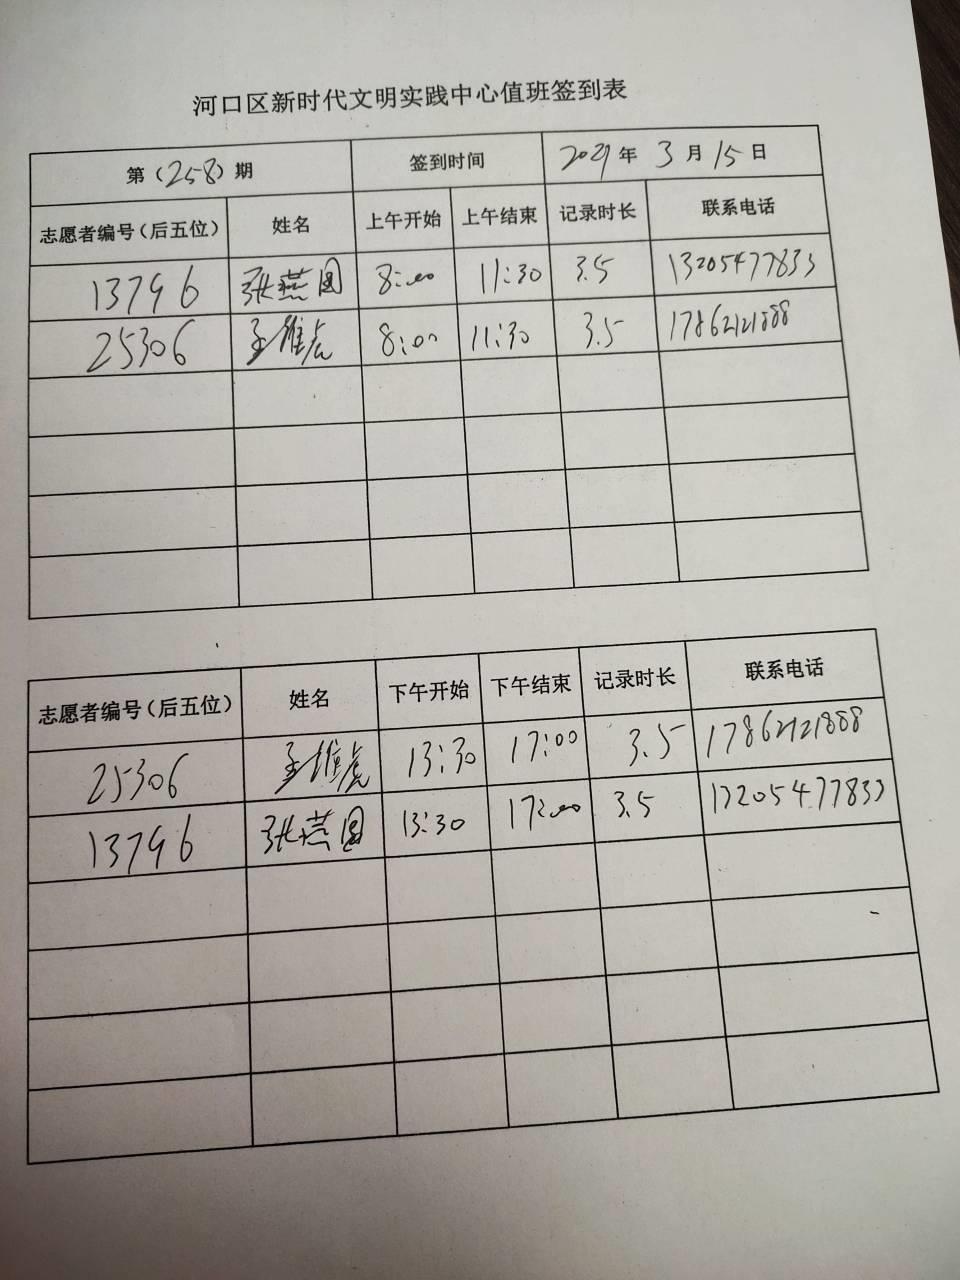 河口区新时代文明实践中心值班签到表
第（258）期 签到时间 2021年3月15日
志愿者编号（后五位） 姓名 上午开始 上午结束 记录时长 联系电话
13796 张燕图 8:00 11:30 3.5 13205477833
25306 8:00 11:30 3.5 17862121888
志愿者编号（后五位） 姓名 下午开始 下午结束 记录时长 联系电话
25306 13:30 17:00 3.5 17862121888
13796 张燕图 13:30 17:00 3.5 13205477833